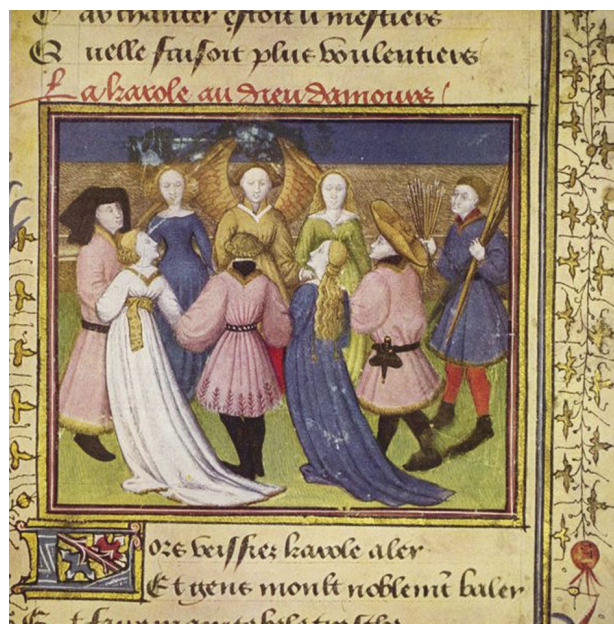 Et au chanter estoit li mestiers
Quelle faisoit plus voulentiers
La karole au dieu damours
Lors veissiez karole aler
Et gens moult noblemt baler